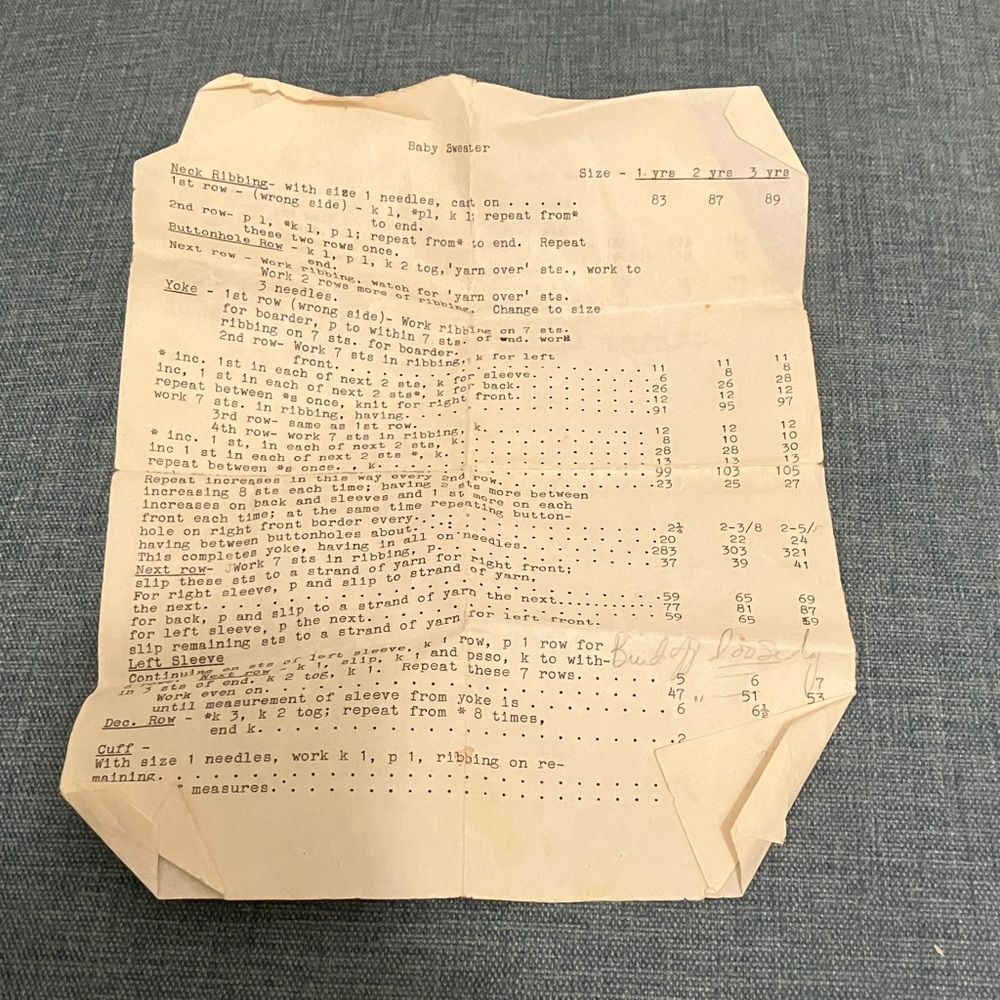 Baby Sweater
Size - 1 yrs 2 yrs 3 yrs
Neck Ribbing- with size 1 needles, cast on . . . . . . 83 87 89
1st row - (wrong side) - k 1, *p1, k 1; repeat from*
to end.
2nd row- p 1, *k 1, p 1; repeat from* to end. Repeat
these two rows once.
Buttonhole Row - k 1, p 1, k 2 tog,'yarn over' sts., work to
end.
Next row - Work ribbing, watch for 'yarn over' sts.
Work 2 rows more of ribbing. Change to size
3 needles.
Yoke - 1st row (wrong side)- Work ribbing on 7 sts.
for boarder, p to within 7 sts. of end. work
ribbing on 7 sts. for boarder.
2nd row- Work 7 sts in ribbing, k for left
front. . . . . . . . . . . . 11 11 11
* inc. 1st in each of next 2 sts, k for sleeve. . . . . . 6 8 8
inc, 1 st in each of next 2 sts*, k for back. . . . . . .26 26 28
repeat between *s once, knit for right front. . . . . . .12 12 12
work 7 sts. in ribbing, having. . . . . . . . . . .91 95 97
3rd row- same as 1st row.
4th row- work 7 sts in ribbing, k. . . . . . . . 12 12 12
* inc. 1 st, in each of next 2 sts, k. . . . . . . . 8 10 10
inc 1 st in each of next 2 sts *, k. . . . . . . . . 28 28 30
repeat between *s once. , k. . . . . . . . . . . 13 13 13
99 103 105
Repeat increases in this way every 2nd row. . . . . . . 23 25 27
increasing 8 sts each time; having 2 sts more between
increases on back and sleeves and 1 st more on each
front each time; at the same time repeating button-
hole on right front border every. . . . . . . . . . . 2¼ 2-3/8 2-5/
having between buttonholes about. . . . . . . . . . . .20 22 24
This completes yoke, having in all on needles. . . . . . .283 303 321
Next row- Work 7 sts in ribbing, p. . . . . . . . . . 37 39 41
slip these sts to a strand of yarn for right front;
For right sleeve, p and slip to strand of yarn,
the next. . . . . . . . . . . . . . . . . .59 65 69
for back, p and slip to a strand of yarn the next. . . . . . 77 81 87
for left sleeve, p the next. . . . . . . . . . . . . . 59 65 69
slip remaining sts to a strand of yarn for left front.
Left Sleeve
Continuing on sts of left sleeve, k 1 row, p 1 row for
Next row - k 1, slip, k 1 and psso, k to with-
in 3 sts of end. k 2 tog, k 1. Repeat these 7 rows. . . . 5 6 7
Work even on. . . . . . . . . . . . . . . . . . 47 " 51 53
until measurement of sleeve from yoke is . . . . . . . 6 6½
Dec. Row - *k 3, k 2 tog; repeat from * 8 times,
end k. . . . . . . . . . . . . . . . . . .2
Cuff -
With size 1 needles, work k 1, p 1, ribbing on re-
maining. . . . . . . . . . . . . . . . . . . .
measures. . . . . . . . . . . . . . . . . .